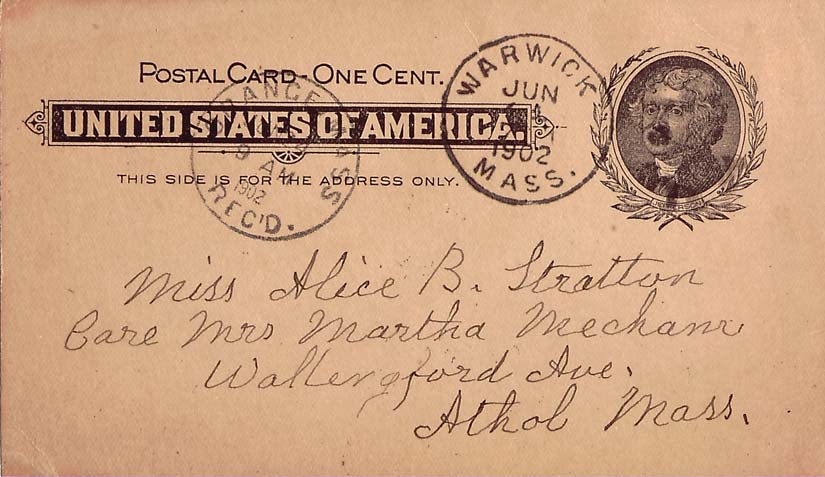 POSTAL CARD - ONE CENT.
UNITED STATES OF AMERICA.
THIS SIDE IS FOR THE ADDRESS ONLY.
WARWICK
JUN
1902
MASS.
ORANGE MASS
9 AM
1902
REC'D.
Miss Alice B. Stratton
Care Mrs Martha Mechanr
Wallengford Ave.
Athol Mass.